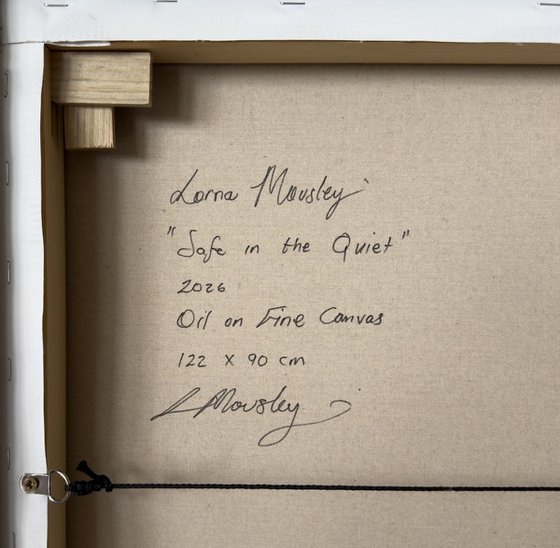 Lorna Mousley
"Safe in the Quiet"
2026
Oil on Fine Canvas
122 x 90 cm
L Mousley